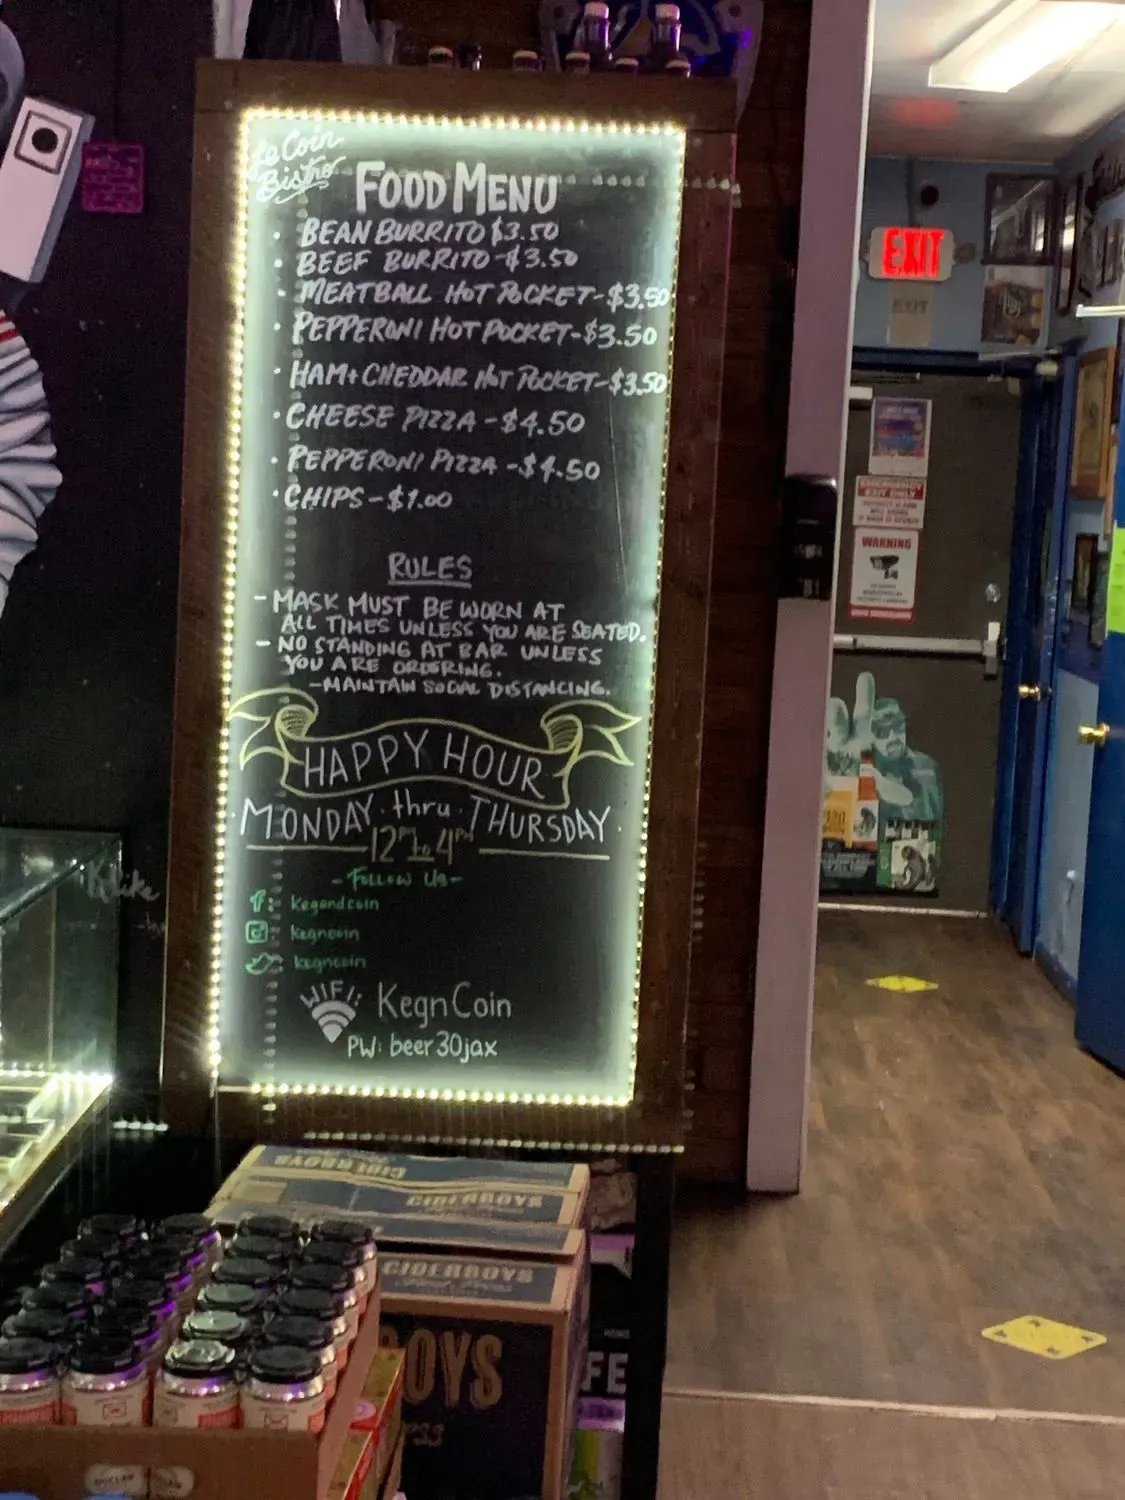 Le Coin
Bistro
FOOD MENU
• BEAN BURRITO $3.50
• BEEF BURRITO - $3.50
• MEATBALL HOT POCKET - $3.50
• PEPPERONI HOT POCKET - $3.50
• HAM + CHEDDAR HOT POCKET - $3.50
• CHEESE PIZZA - $4.50
• PEPPERONI PIZZA - $4.50
• CHIPS - $1.00
RULES
- MASK MUST BE WORN AT
ALL TIMES UNLESS YOU ARE SEATED.
- NO STANDING AT BAR UNLESS
YOU ARE ORDERING.
- MAINTAIN SOCIAL DISTANCING.
HAPPY HOUR
MONDAY • thru • THURSDAY
12PM to 4PM
- FOLLOW US -
f: Kegandcoin
kegncoin
kegncoin
WIFI: KegnCoin
PW: beer30jax
EXIT
EXIT
EMERGENCY
EXIT ONLY
WARNING
CIDERBOYS
CIDERBOYS
CIDERBOYS
OYS
FE